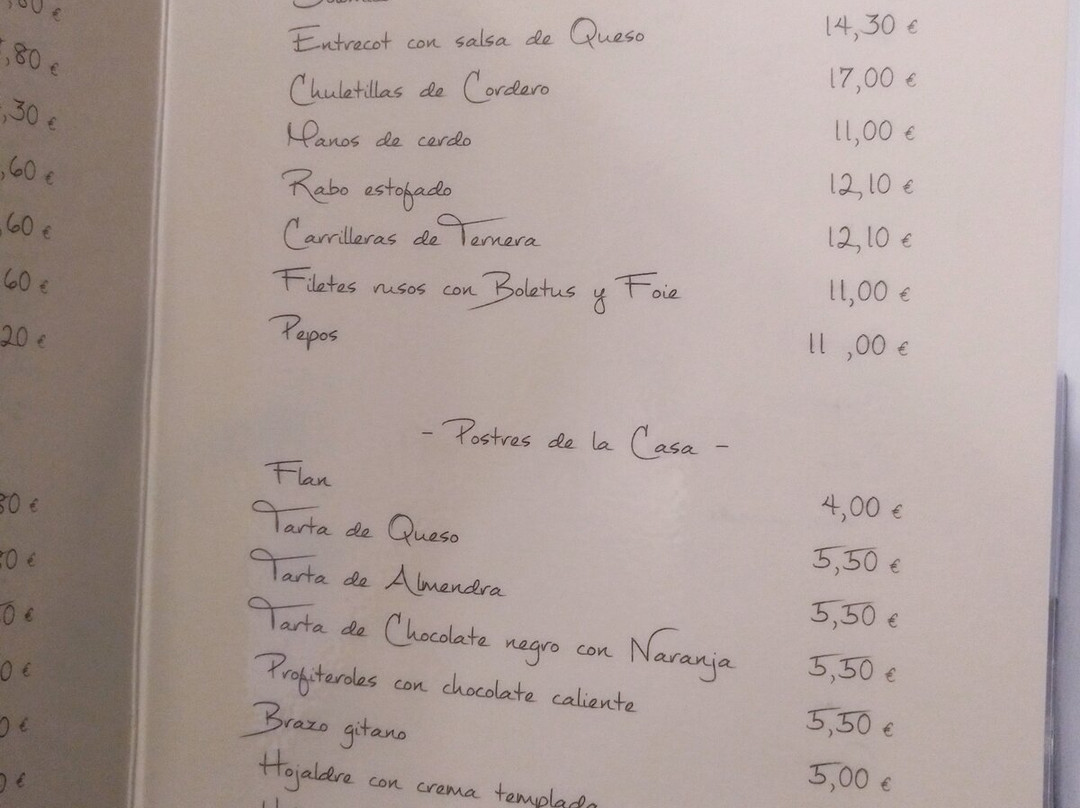 ,80 €
,30 €
,60 €
,60 €
60 €
20 €
Entrecot con salsa de Queso 14,30 €
Chuletillas de Cordero 17,00 €
Manos de cerdo 11,00 €
Rabo estofado 12,10 €
Carrilleras de Ternera 12,10 €
Filetes rusos con Boletus y Foie 11,00 €
Pepos 11 ,00 €
- Postres de la Casa -
Flan 4,00 €
Tarta de Queso 5,50 €
Tarta de Almendra 5,50 €
Tarta de Chocolate negro con Naranja 5,50 €
Profiteroles con chocolate caliente 5,50 €
Brazo gitano 5,00 €
Hojaldre con crema templada